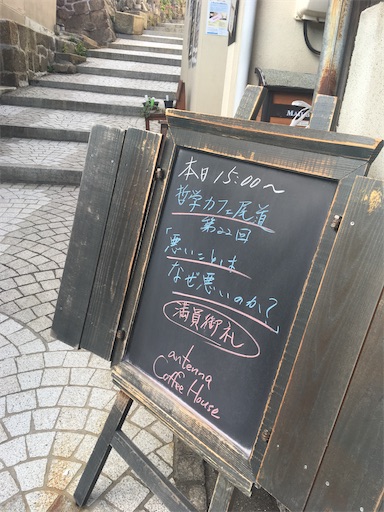 本日15:00〜
哲学カフェ尾道
第22回
「悪いことは
なぜ悪いのか?」
満員御礼
antenna
Coffee House